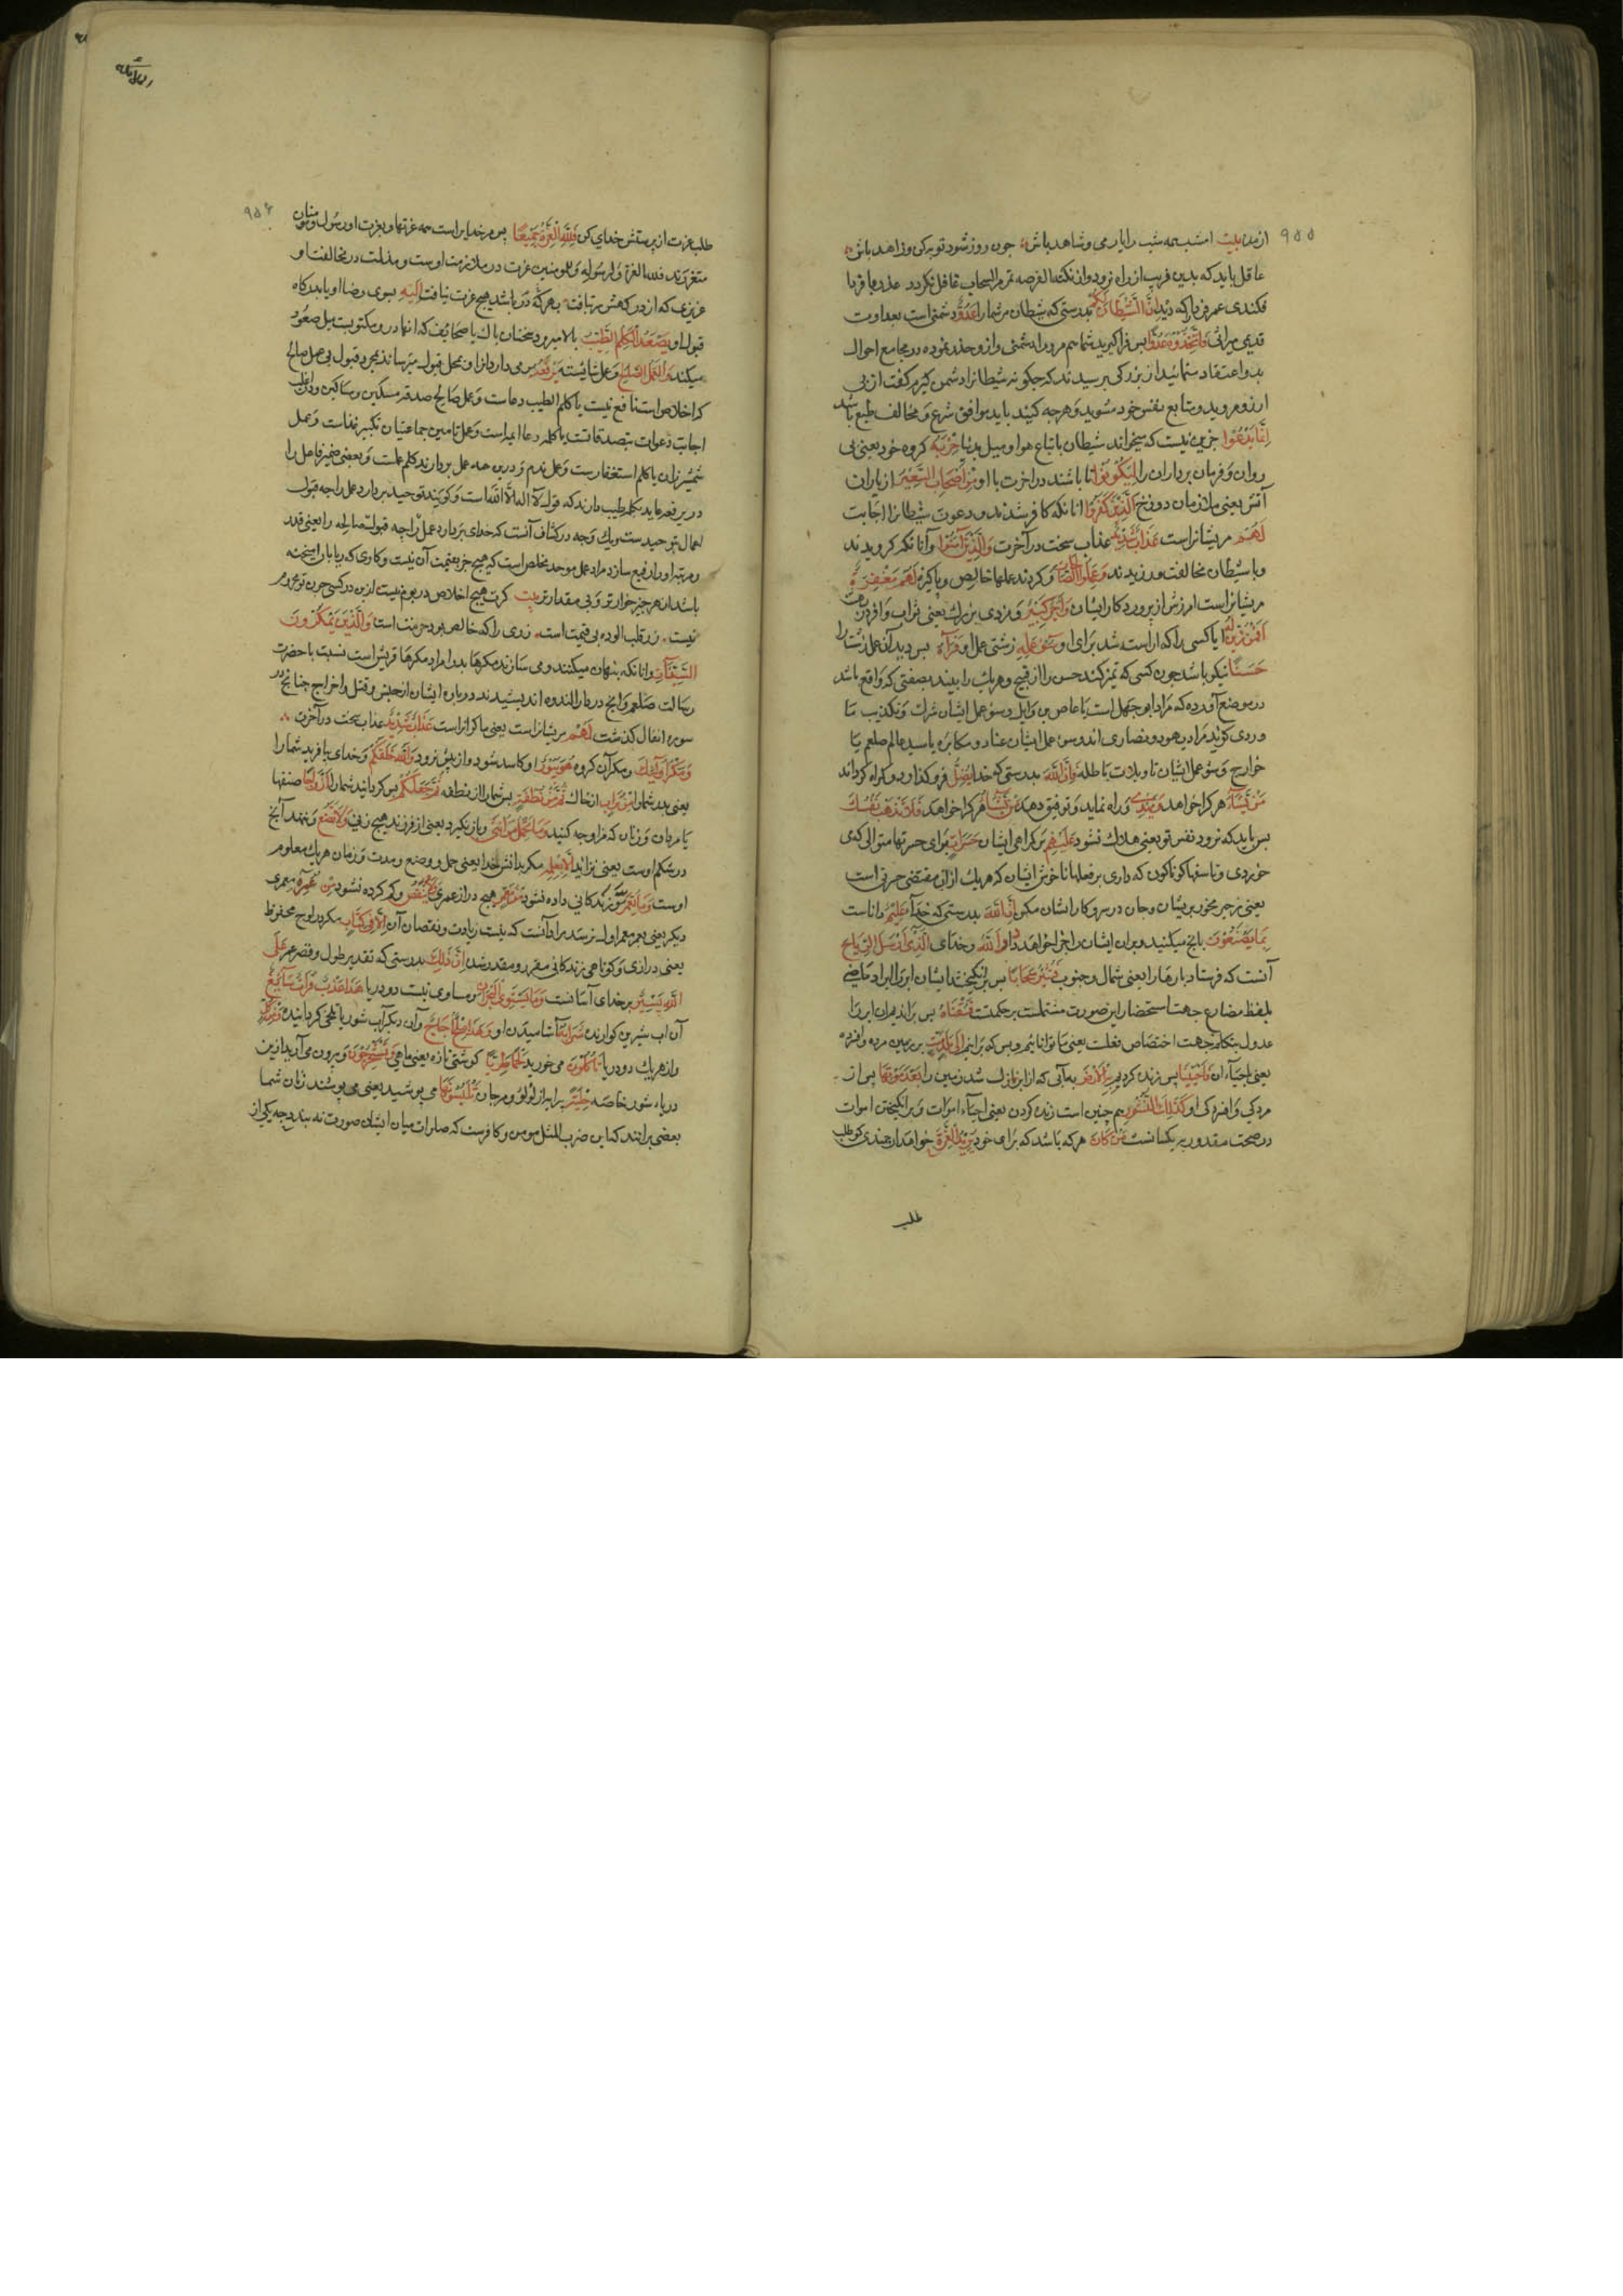 ۹۵۵
ازمن بیت امشب همه شب رایارمی و شاهد باش چون روز شود توبه کن و زاهد باش
عاقل باید که بدین فریب از راه نرود و از نکته الفرصه تمر مر السحاب غافل نکردد عذر بافردا
فکندی عمر فردا که دید إِنَّ الشَّيْطَانَ لَكُمْ بدرستی که شیطان مر شما را عَدُوٌّ دشمنی است بعداوت
قدیمی میراثی فَاتَّخِذُوهُ عَدُوًّا پس فرا کیرید شما هم مر او را دشمنی و ازو حذر نموده در مجامع احوال
بدو اعتقاد منمائید از بزرکی پرسیدند که چکونه شیطانرا دشمن کیریم کفت از پی
ارزو مروید و متابع نفس خود مشوید و هرچه کنید باید موافق شرع و مخالف طبع باشد
إِنَّمَا يَدْعُوا جزین نیست که میخواند شیطان باتباع هوا و میل بدنیا حِزْبَهُ کروه خود یعنی پی
روان و فرمان برداران را لِيَكُونُوا تا باشند در اخرت با او مِنْ أَصْحَابِ السَّعِيرِ از یاران
آتش یعنی ملازمان دوزخ الَّذِينَ كَفَرُوا انانکه کافر شدند و دعوت شیطانرا اجابت
لَهُمْ مریشانراست عَذَابٌ شَدِيدٌ عذاب سخت در آخرت وَالَّذِينَ آمَنُوا و آنانکه کرویدند
و با شیطان مخالفت ورزیدند وَعَمِلُوا الصَّالِحَاتِ و کردند عملها خالص و پاکیزه لَهُمْ مَغْفِرَةٌ
مریشانراست امرزش از پروردکار ایشان وَأَجْرٌ كَبِيرٌ و مزدی بزرك یعنی ثواب وافر در بهشت
أَفَمَنْ زُيِّنَ لَهُ ایا کسی را که اراسته شد برای او سُوءُ عَمَلِهِ زشتی عمل او فَرَآهُ پس دید آن عمل زشت را
حَسَنًا نیکو باشد چون کسی که تمیز کند حسن را از قبیح و هر یك را بیند بصفتی که واقع باشد
در موضع آورده که مراد ابو جهل است یا عاص بن وایل و سوء عمل ایشان شرك و تکذیب
و ردی کویند مراد یهود و نصاری اند و سوء عمل ایشان عناد و مکابره با سید عالم صلعم یا
خوارج و سوء عمل ایشان تاویلات باطله فَإِنَّ اللَّهَ بدرستی که خدا يُضِلُّ فروکذارد و کمراه کرداند
مَنْ يَشَاءُ هر کرا خواهد وَيَهْدِي و راه نماید و توفیق دهد مَنْ يَشَاءُ هر کرا خواهد فَلَا تَذْهَبْ نَفْسُكَ
پس باید که نرود نفس تو یعنی هلاك نشود عَلَيْهِمْ بر کمراهی ایشان حَسَرَاتٍ برای حسرتها متوالی که می
خوردی و تاسفها کوناکون که داری بر فعلها ناخوش ایشان که هر یك از ان مقتضی حسرتی است
یعنی زجر مخور بریشان و جان در سر و کار ایشان مکن إِنَّ اللَّهَ بدرستی که خدا عَلِيمٌ داناست
بِمَا يَصْنَعُونَ بانچ میکنید و بران ایشان را جزا خواهد داد وَاللَّهُ و خدای الَّذِي أَرْسَلَ الرِّيَاحَ
آنست که فرستاد بادها را یعنی شمال و جنوب فَتُثِيرُ سَحَابًا پس برانکیختند ایشان ابر را ایراد ماضی
بلفظ مضارع جهت استحضار این صورت مشتملست بر حکمت فَسُقْنَاهُ پس براندیم ان ابر را
عدول بتکلم جهت اختصاص فعلت یعنی ما توانائیم و بس که برانیم إِلَى بَلَدٍ مَيِّتٍ بر زمین مرده و افسرده
یعنی احیاء ان فَأَحْيَيْنَا پس زنده کردیم بِهِ الْأَرْضَ به آبی که از ابر نازل شد زمین را بَعْدَ مَوْتِهَا پس از
مردکی و افسردکی او كَذَلِكَ النُّشُورُ هم چنین است زنده کردن یعنی احیاء اموات و برانکیختن اموات
در صحت مقدوریه یکسانست مَنْ كَانَ هر که باشد که برای خود يُرِيدُ الْعِزَّةَ خواهد ارجمندی کو طلب
طلب
۹۵۶
طلب عزت از پرستش خدای کن فَلِلَّهِ الْعِزَّةُ جَمِيعًا پس مر خدایراست همه عزتها و بعزت او رسول و مومنان
متعززند فلله العزة و لرسوله و للمومنین عزت در ملازمت اوست و مذلت در مخالفت او
عزیزی که از درکهش سر بتافت بهر در که شد هیچ عزت نیافت إِلَيْهِ بسوی رضا او یا بدرکاه
قبول او يَصْعَدُ الْكَلِمُ الطَّيِّبُ بالا میرود سخنان پاك یا صحائف که انها در و مکتوبست محل صعود
میکند وَالْعَمَلُ الصَّالِحُ و عمل شایسته يَرْفَعُهُ بر می دارد انرا و بمحل قبول میرساند بمجرد قبول بی عمل صالح
که اخلاص است نافع نیست یا کلم الطیب دعاست و عمل صالح صدقه مسکین و مساکین
اجابت دعوات بتصدقاتست یا کلمه دعا ایمه است و عمل تامین جماعتیان تکبیر غزاست و عمل
شمشیر زدن یا کلم استغفارست و عمل ندم و درین همه عمل بردارنده کلم است و بعضی ضمیر فاعل را
در یرفعه عاید بکلم طیب دارند که قول لا اله الا الله است و کویند توحید بردارد عمل را چه قبول
اعمال بتوحیدست و یك وجه در کشاف آنست که خدای بردارد عمل را چه قبولت صالحه را یعنی قدر
و مرتبه او را رفیع سازد مراد عمل موحد مخلص است که هیچ چیز بقیمت آن نیست و کاری که ریا با او امیخته
باشد از هر چیز خوارتر و بی مقدارتر بیت کرت هیچ اخلاص در بوم نیست ازین در کسی چون تو محروم
نیست زر قلب الوده بی قیمت است زری را که خالص بود حرمت است وَالَّذِينَ يَمْكُرُونَ
السَّيِّئَاتِ و انانکه پنهان میکنند و می سازند مکرها بد مراد مکرها قریش است نسبت با حضرت
رسالت صلعم و انچ در دار الندوه اندیشیدند در باره ایشان از حبس و قتل و اخراج چنانچ در
سوره انفال کذشت لَهُمْ مریشانراست یعنی ماکرانراست عَذَابٌ شَدِيدٌ عذاب سخت در آخرت
وَمَكْرُ أُولَئِكَ و مکر آن کروه هُوَ يَبُورُ او کاسد شود و از پیش نرود وَاللَّهُ خَلَقَكُمْ و خدای بیافرید شما را
یعنی پدر شما را مِنْ تُرَابٍ از خاك ثُمَّ مِنْ نُطْفَةٍ پس شما را از نطفه ثُمَّ جَعَلَكُمْ پس کردانید شما را أَزْوَاجًا صنفها
یا مردان و زنان که مزاوجه کنید وَمَا تَحْمِلُ مِنْ أُنْثَى و باز نکیرد یعنی از فرزند هیچ زنی وَلَا تَضَعُ و ننهد آنچ
در شکم اوست یعنی نزاید إِلَّا بِعِلْمِهِ مکر بدانش خدا یعنی حمل و وضع و مدت و زمان هر یك معلوم
اوست وَمَا يُعَمَّرُ و زندکانی داده نشود مِنْ مُعَمَّرٍ هیچ دراز عمری وَلَا يُنْقَصُ و کم کرده نشود مِنْ عُمُرِهِ معمری
دیکر یعنی بعمر معمر اول نرسد مراد آنست که نیست زیادت و نقصان آن إِلَّا فِي كِتَابٍ مکر در لوح محفوظ
یعنی درازی و کوتاهی زندکانی مقرر و مقدر شده إِنَّ ذَلِكَ بدرستی که تقدیر طول و قصر عمر عَلَى
اللَّهِ يَسِيرٌ بر خدای آسانست وَمَا يَسْتَوِي الْبَحْرَانِ و مساوی نیست دو دریا هَذَا عَذْبٌ فُرَاتٌ سَائِغٌ
آن اب شیرین کوارنده شَرَابُهُ آشامیدن او وَهَذَا مِلْحٌ أُجَاجٌ و آن دیکر آب شور یا تلخی کردانیده وَمِنْ كُلٍّ
و از هر یك دو دریا تَأْكُلُونَ می خورید لَحْمًا طَرِيًّا کوشتی تازه یعنی ماهی وَتَسْتَخْرِجُونَ و بیرون می آرید ازین
دریاء شور خاصه حِلْيَةً پیرایه از لؤلؤ و مرجان تَلْبَسُونَهَا می پوشید یعنی می پوشند زنان شما
بعضی برانند که این ضرب المثل مومن و کافرست که مساوات میان ایشان صورت نه بندد چه یکی از